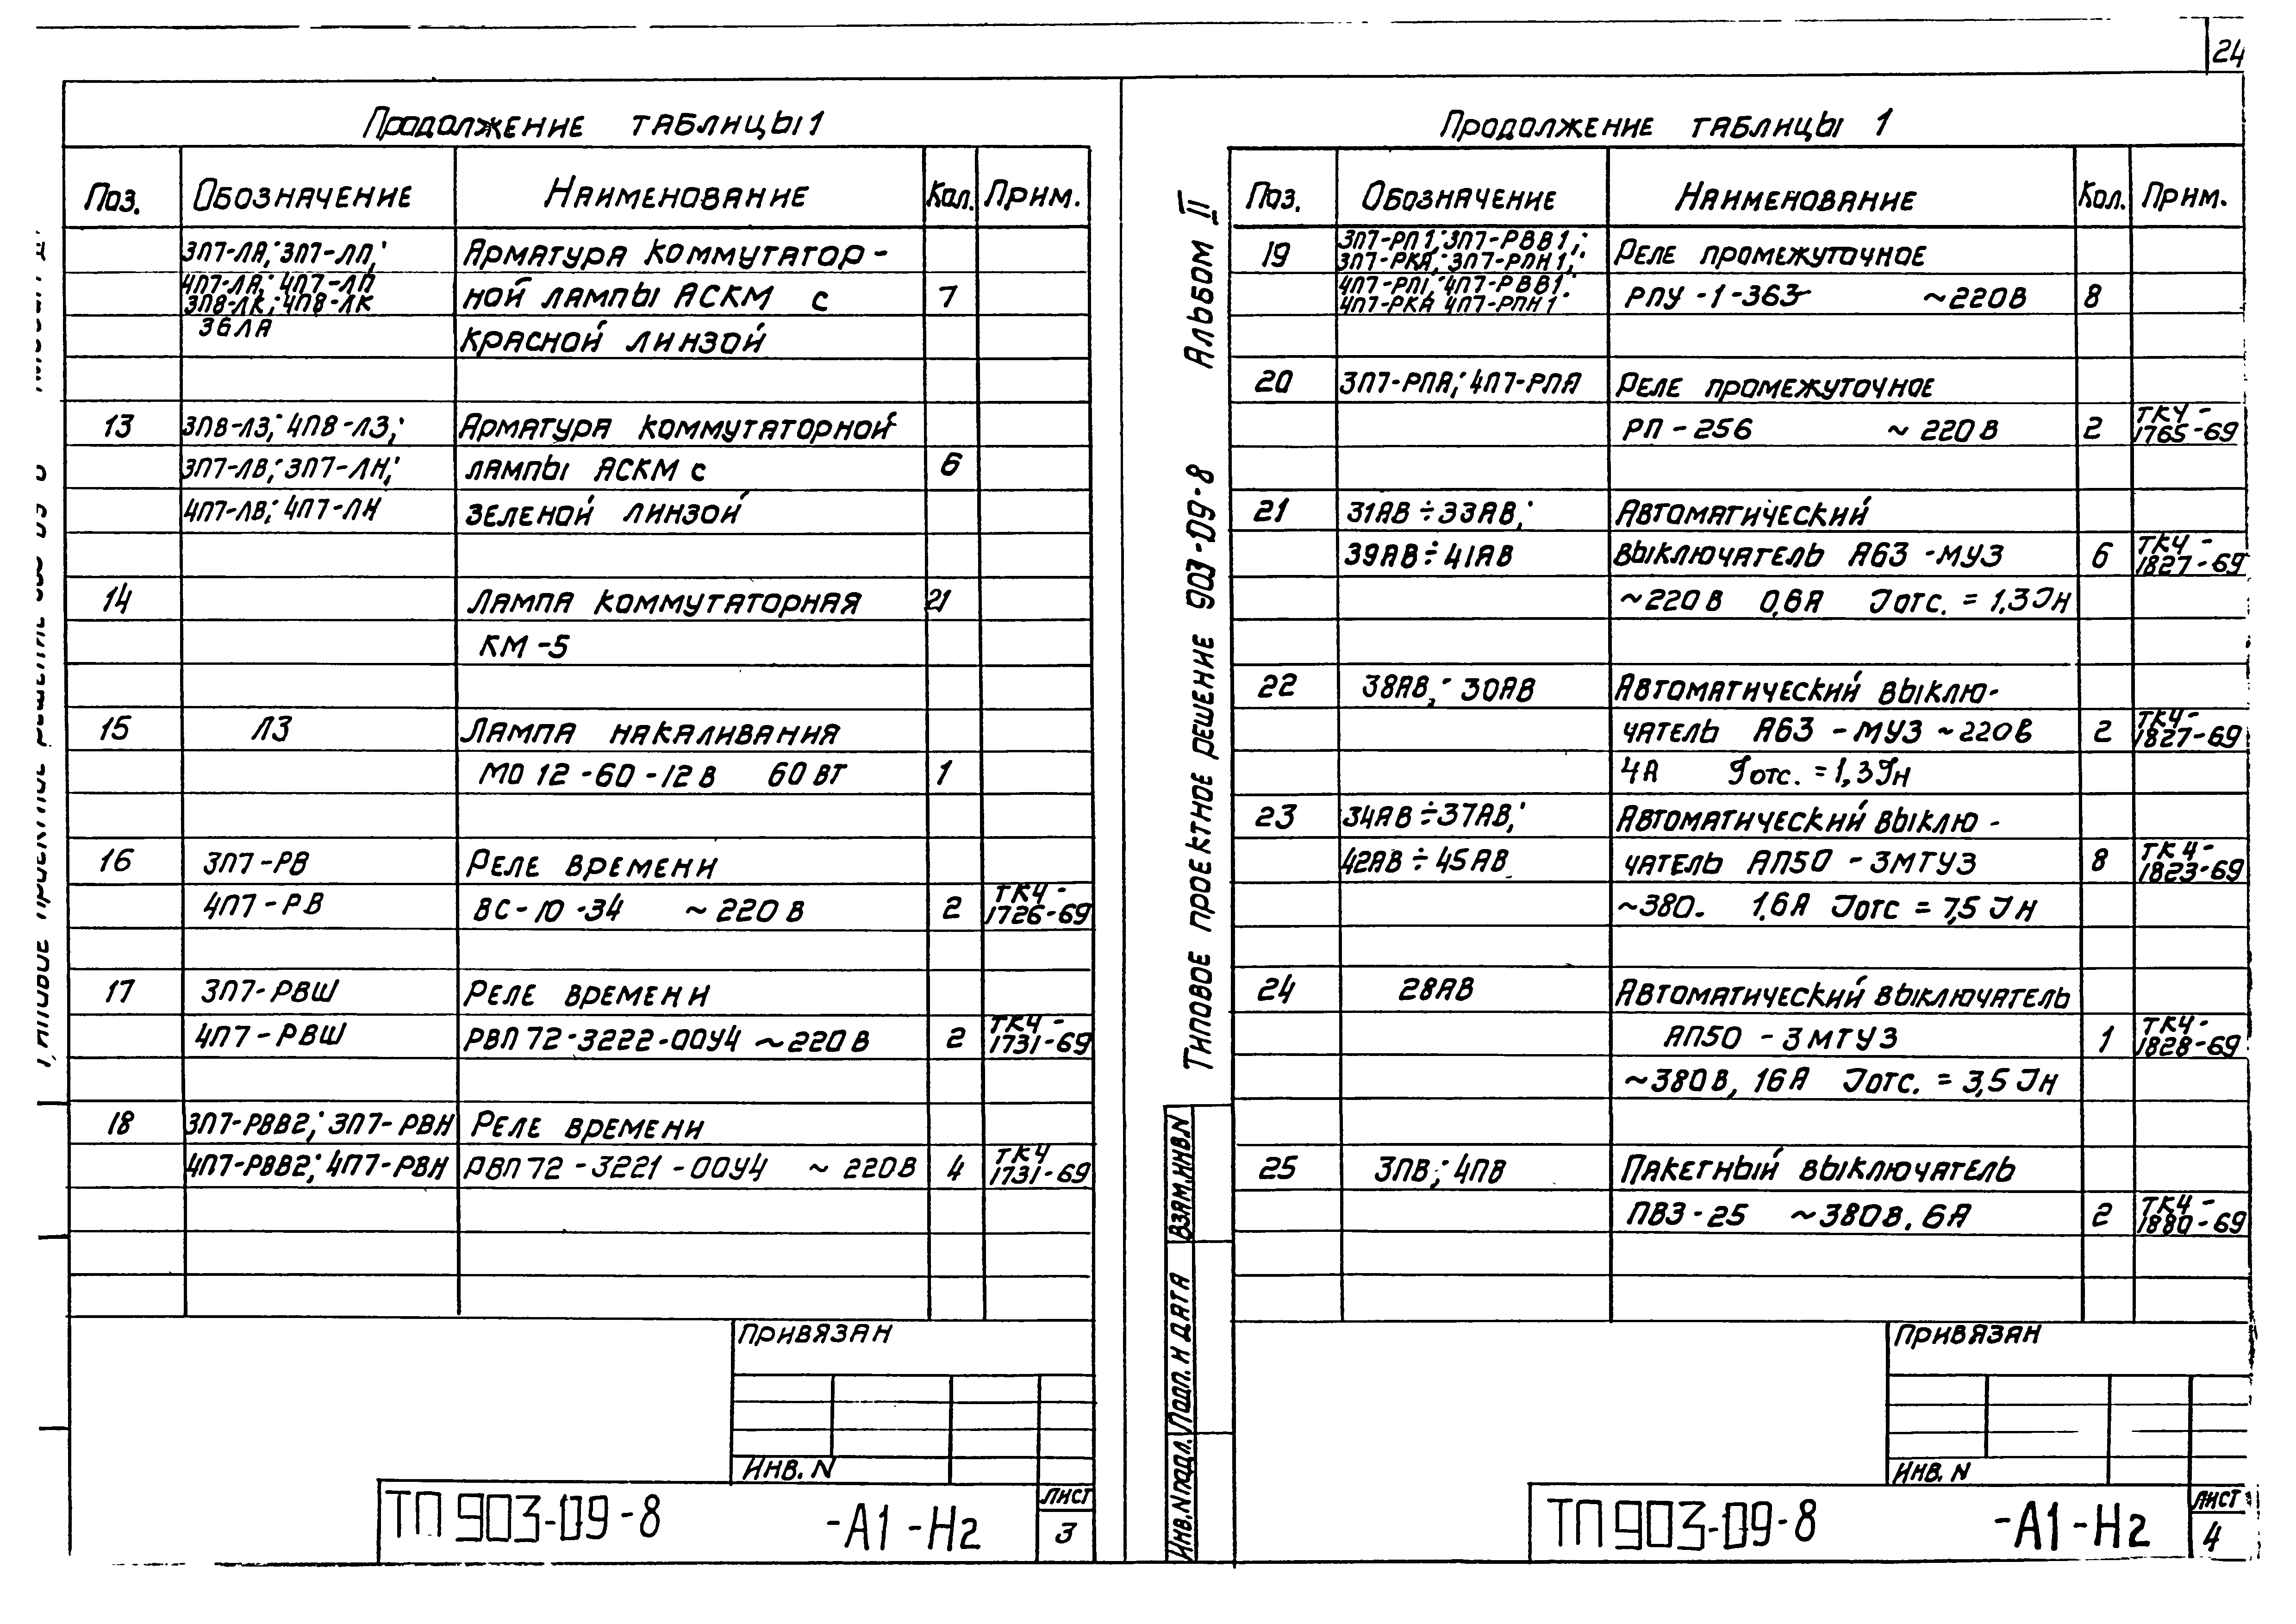 24
Продолжение таблицы 1
Поз. Обозначение Наименование Кол. Прим.
3П7-ЛА; 3П7-ЛП; Арматура коммутатор-
4П7-ЛА; 4П7-ЛП
3П8-ЛК; 4П8-ЛК ной лампы АСКМ с 7
36ЛА красной линзой
13 3П8-ЛЗ; 4П8-ЛЗ; Арматура коммутаторной
3П7-ЛВ; 3П7-ЛН; лампы АСКМ с 6
4П7-ЛВ; 4П7-ЛН зеленой линзой
14 Лампа коммутаторная 21
КМ-5
15 ЛЗ Лампа накаливания
МО 12-60-12В 60 Вт 1
16 3П7-РВ Реле времени
4П7-РВ ВС-10-34 ~220В 2 ТК4-1726-69
17 3П7-РВШ Реле времени
4П7-РВШ РВП72-3222-00У4 ~220В 2 ТК4-1731-69
18 3П7-РВВ2; 3П7-РВН Реле времени
4П7-РВВ2; 4П7-РВН РВП72-3221-00У4 ~220В 4 ТК4 1731-69
Привязан
Инв. N
ТП 903-09-8 -А1-Н2
Лист
3
Альбом II
Типовое проектное решение 903-09-8
Взам.инв.N
Подп. и дата
Инв.N подл.
Продолжение таблицы 1
Поз. Обозначение Наименование Кол. Прим.
19 3П7-РП1; 3П7-РВВ1; Реле промежуточное
3П7-РКА; 3П7-РПН1;
4П7-РП1; 4П7-РВВ1; РПУ-1-363 ~220В 8
4П7-РКА 4П7-РПН1
20 3П7-РПА; 4П7-РПА Реле промежуточное
РП-256 ~220В 2 ТК4-1765-69
21 31АВ÷33АВ; Автоматический
39АВ÷41АВ выключатель А63-МУ3 6 ТК4-1827-69
~220В 0,6А Iотс. = 1,3Iн
22 38АВ; 30АВ Автоматический выклю-
чатель А63-МУ3 ~220В 2 ТК4-1827-69
4А Iотс. = 1,3Iн
23 34АВ÷37АВ; Автоматический выклю-
42АВ÷45АВ чатель АП50-3МТУ3 8 ТК4-1823-69
~380. 1,6А Iотс = 7,5Iн
24 28АВ Автоматический выключатель
АП50-3МТУ3 1 ТК4-1828-69
~380В, 16А Iотс. = 3,5Iн
25 3ПВ; 4ПВ Пакетный выключатель
ПВ3-25 ~380В. 6А 2 ТК4-1880-69
Привязан
Инв. N
ТП 903-09-8 -А1-Н2
Лист
4